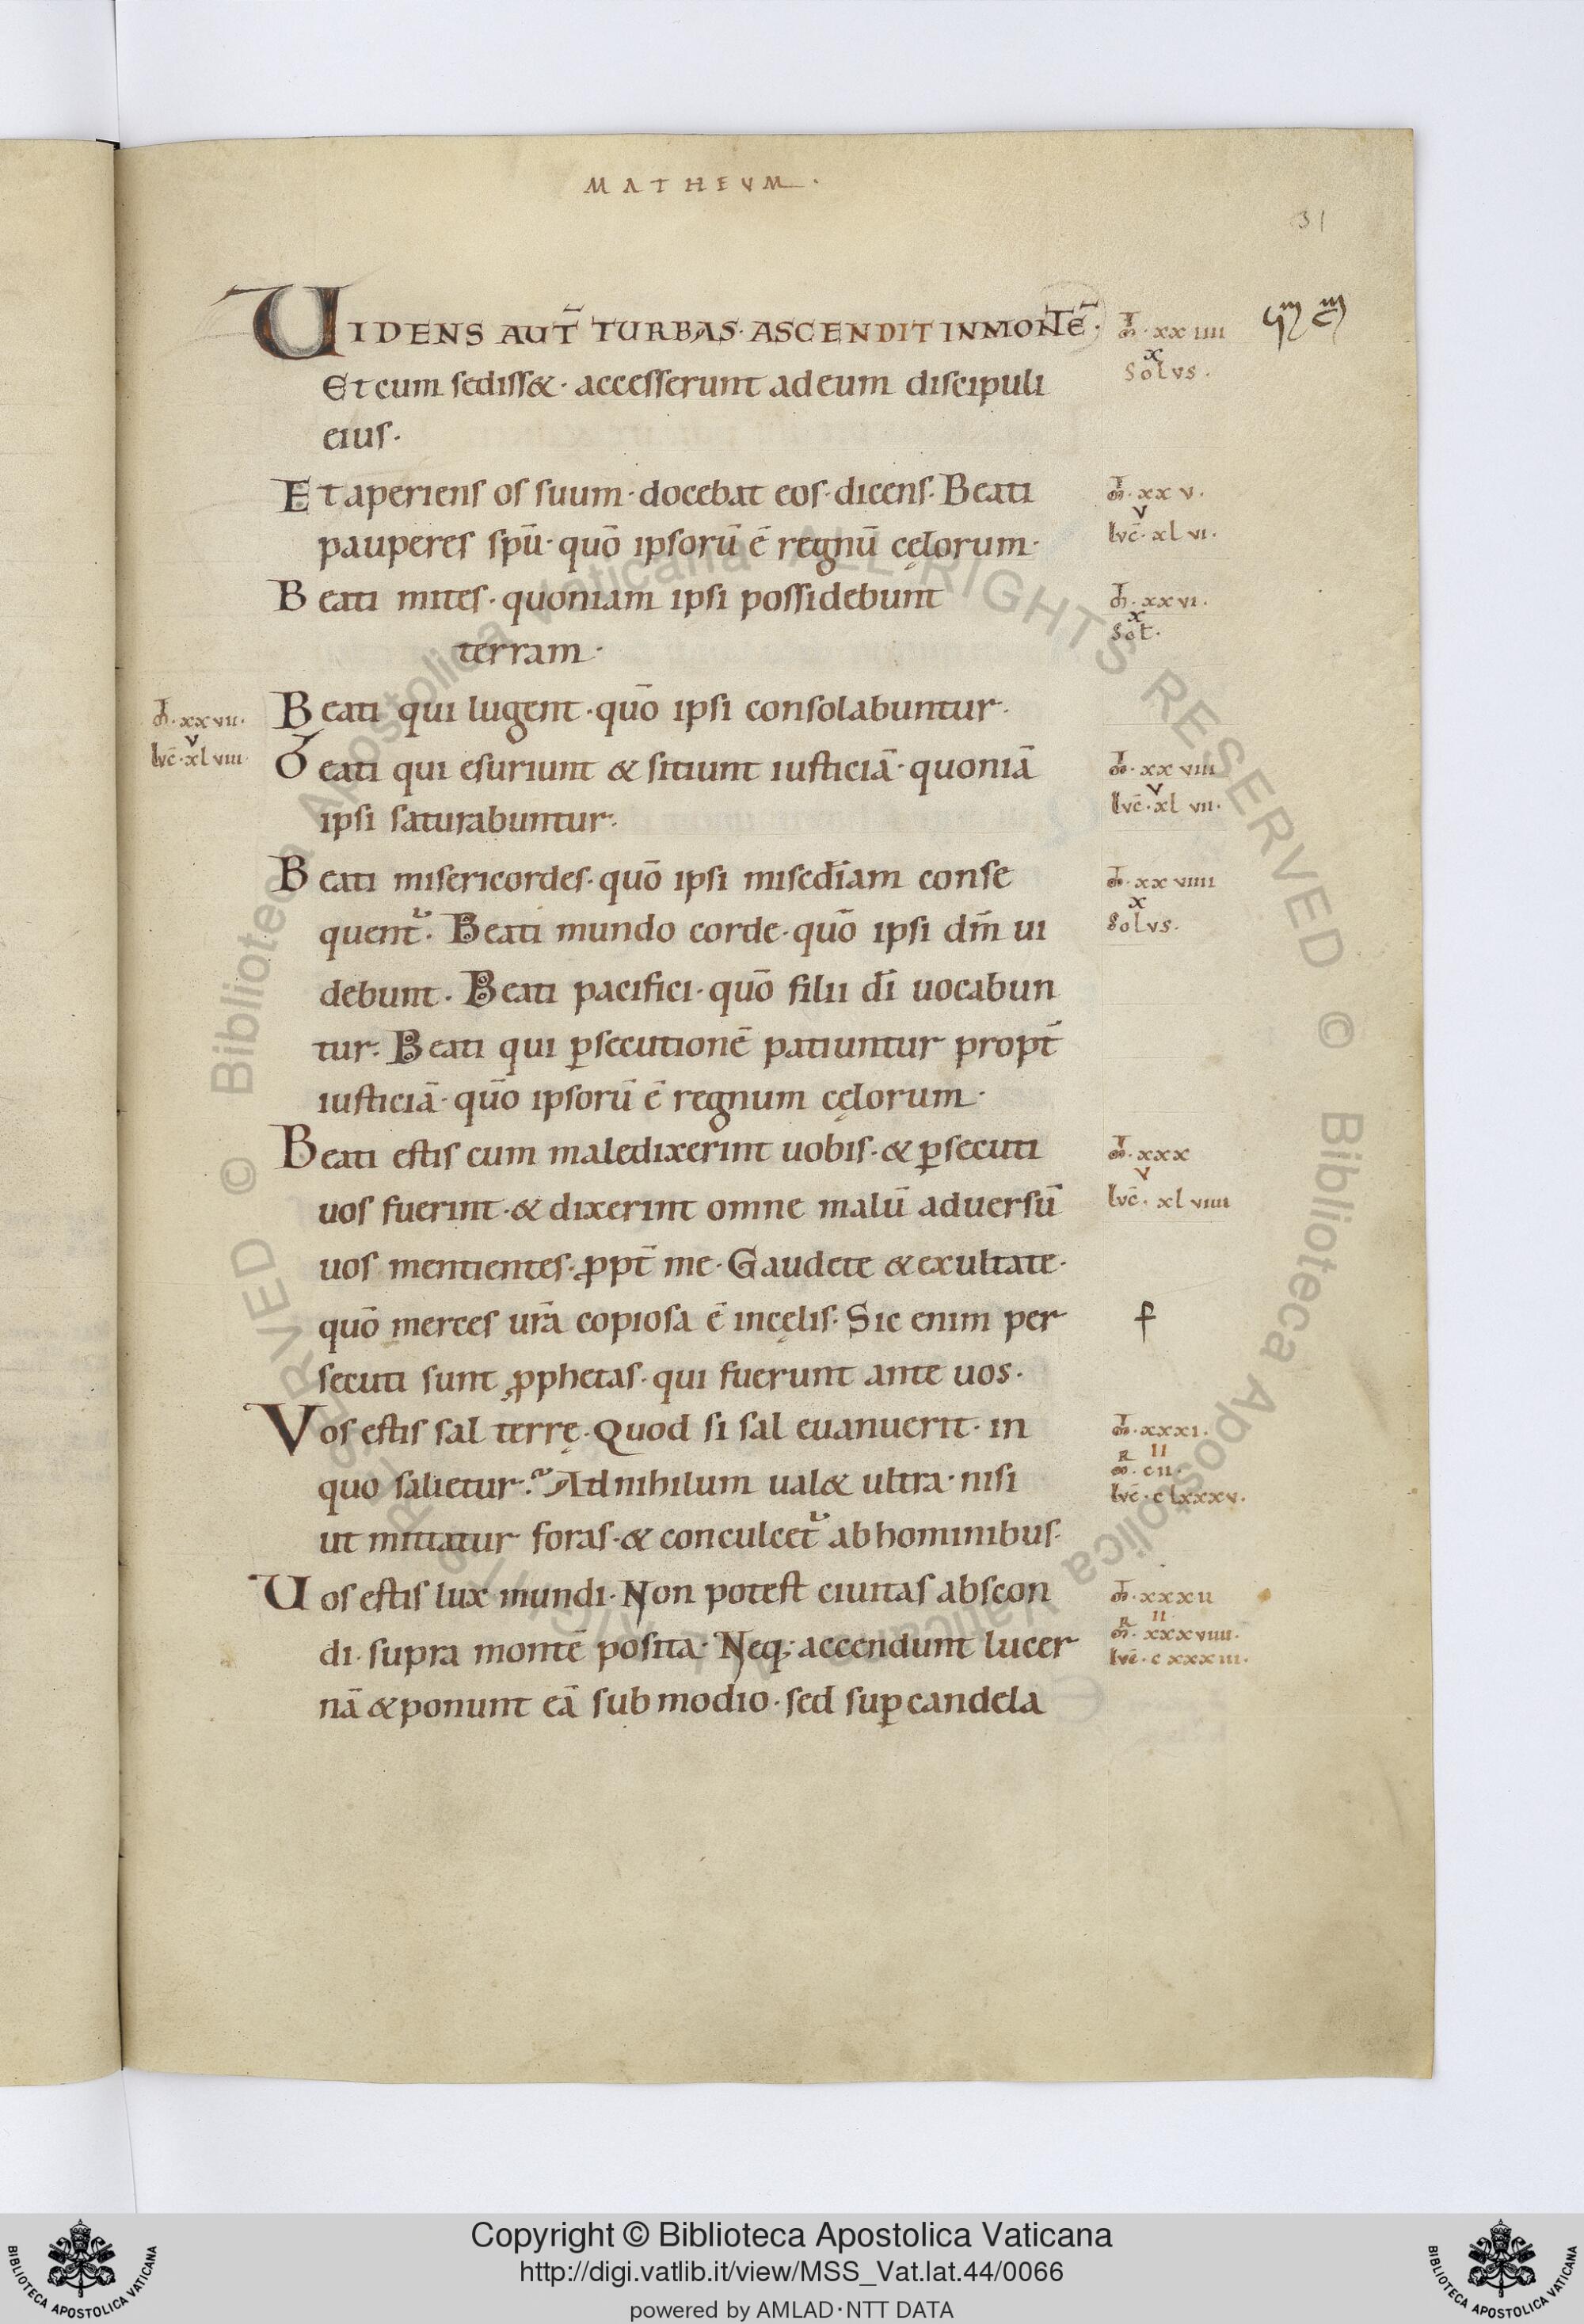 MATHEVM.
31
UIDENS AUT̄ TURBAS· ASCENDIT INMONTĒ·
Et cum sediss&· accesserunt adeum discipuli
eius·
Et aperiens os suum· docebat eos· dicens· Beati
pauperes spū· quō ipsorū ē regnū cęlorum·
Beati mites· quoniam ipsi possidebunt
terram·
Beati qui lugent· quō ipsi consolabuntur·
Beati qui esuriunt & sitiunt iusticiā· quoniā
ipsi saturabuntur·
Beati misericordes· quō ipsi misedīam conse
quent᷑· Beati mundo corde· quō ipsi dm̄ ui
debunt· Beati pacifici· quō filii dī uocabun
tur· Beati qui ꝑsecutionē patiuntur propt̄
iusticiā· quō ipsorū ē regnum cęlorum·
Beati estis cum maledixerint uobis· & ꝑsecuti
uos fuerint· & dixerint omne malū aduersū
uos mentientes· ꝓpt̄ me· Gaudete & exultate·
quō merces ur̄a copiosa ē incęlis· Sic enim per
secuti sunt ꝓphetas· qui fuerunt ante uos·
Vos estis sal terrę· Quod si sal euanuerit· in
quo salietur? Adnihilum ual& ultra· nisi
ut mittatur foras· & conculcet᷑ abhominibus·
Uos estis lux mundi· Non potest ciuitas abscon
di· supra montē posita· Neq; accendunt lucer
nā & ponunt eā sub modio· sed suꝑ candela
xxiiii
x
Solvs.
xxv.
v
lvc̄· xlvi.
xxvi.
x
Sol.
xxvii.
v
lvc̄· xlviii
xxviii
v
lvc̄· xlvii.
xxviiii
x
Solvs.
xxx
v
lvc̄· xlviiii
xxxi.
II
R cii.
lvc̄· clxxxv.
xxxii
II
R xxxviiii.
lvc̄· cxxxiii.
© Biblioteca Apostolica Vaticana ALL RIGHTS RESERVED © Biblioteca Apostolica Vaticana
Copyright © Biblioteca Apostolica Vaticana
http://digi.vatlib.it/view/MSS_Vat.lat.44/0066
powered by AMLAD·NTT DATA
BIBLIOTECA APOSTOLICA VATICANA
BIBLIOTECA APOSTOLICA VATICANA